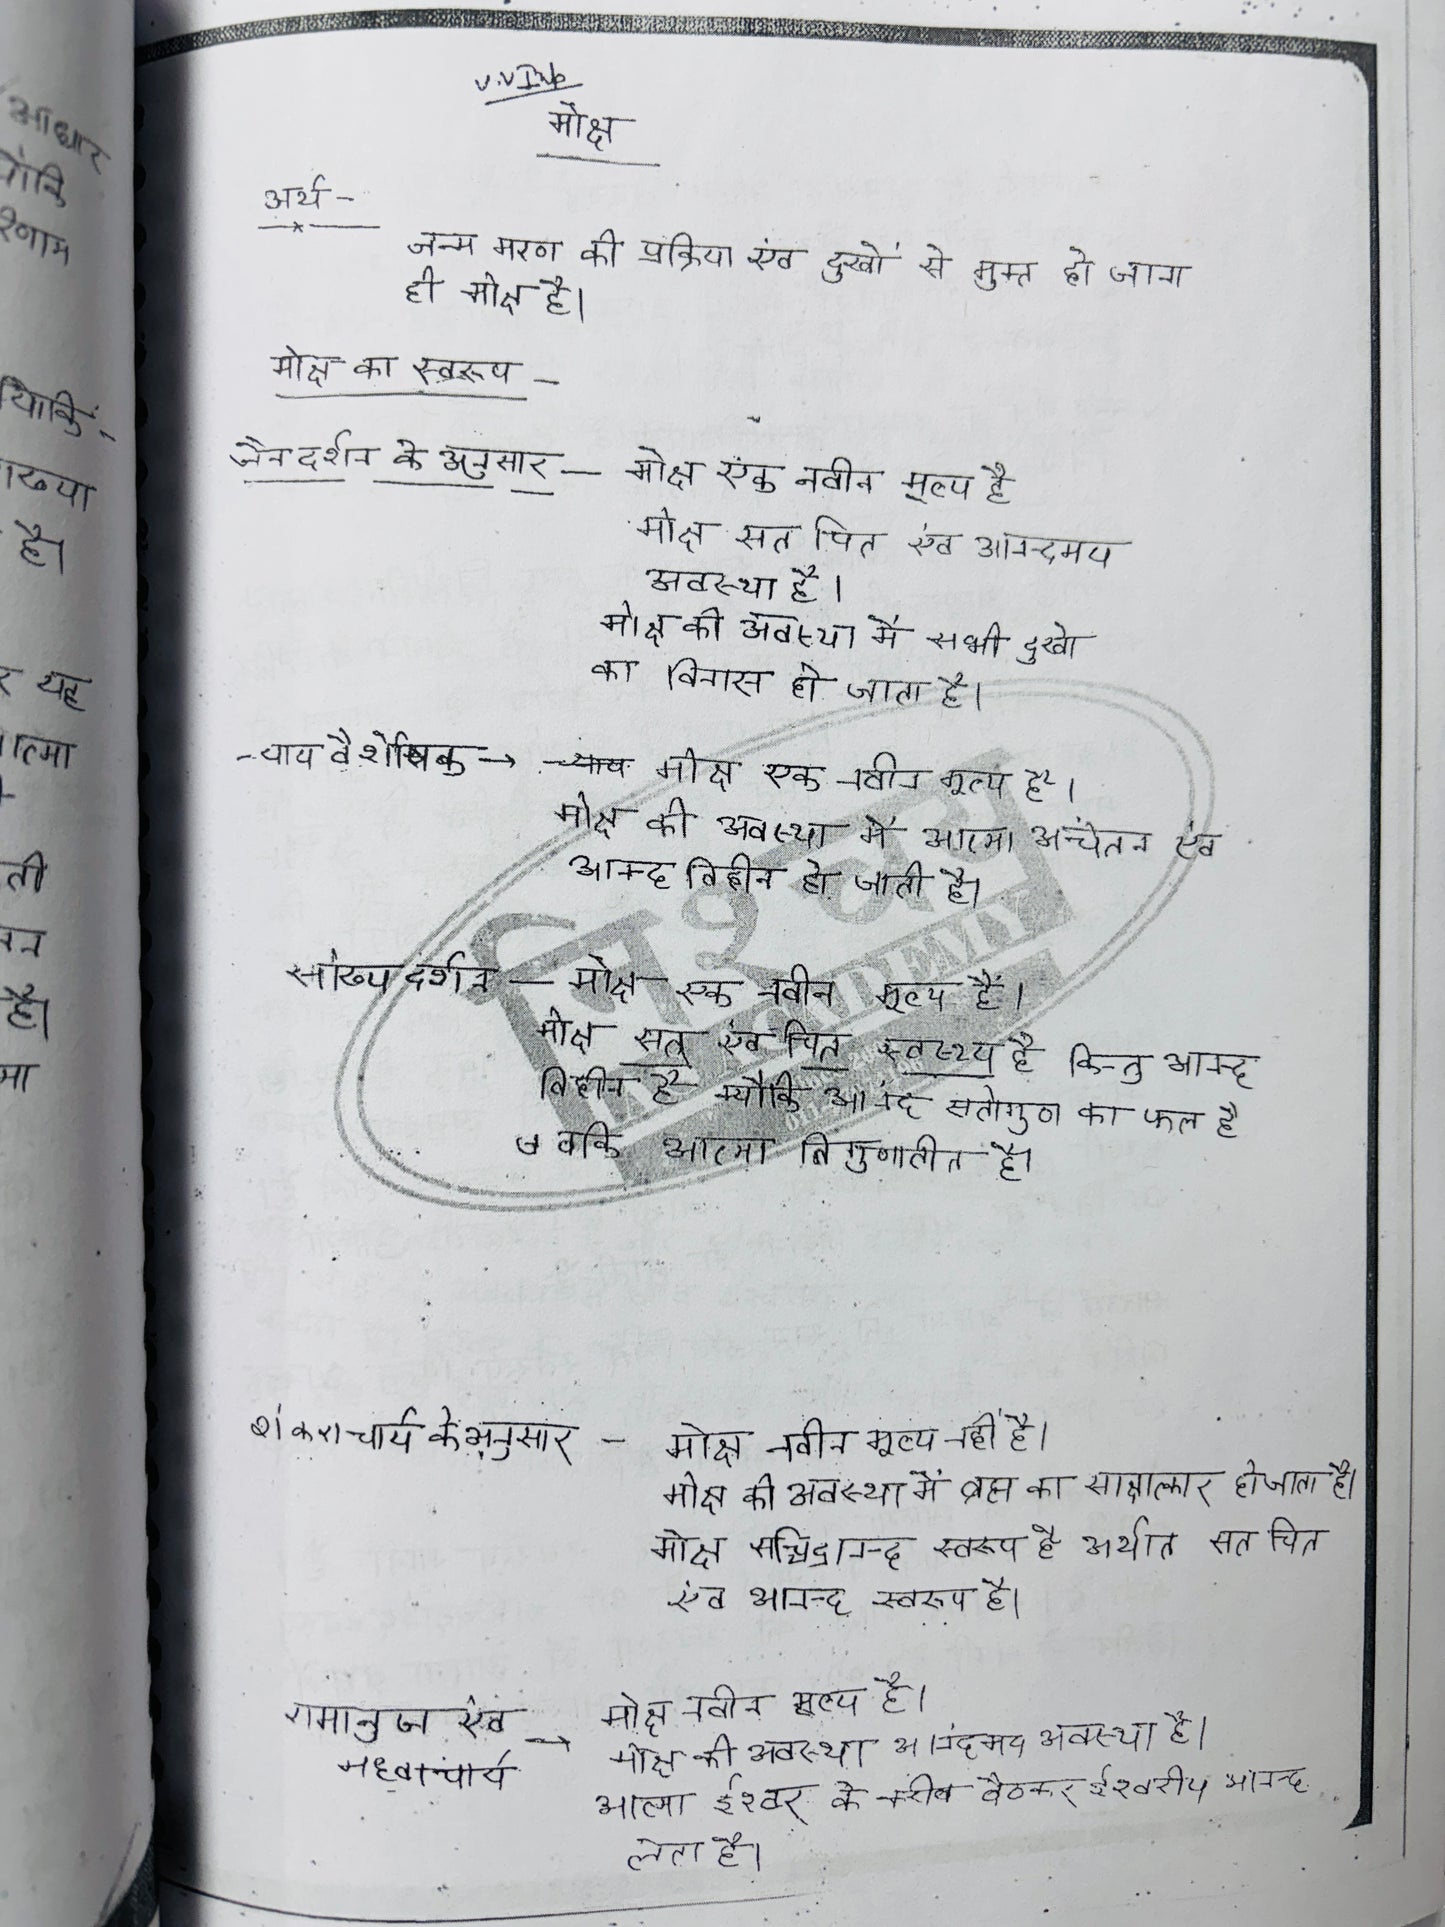 आधार
है।
र यह
ती
है।
मा
V.V Imp
मोक्ष
अर्थ -
जन्म मरण की प्रक्रिया एंव दुखों से मुक्त हो जाना
ही मोक्ष है।
मोक्ष का स्वरूप -
जैन दर्शन के अनुसार - मोक्ष एंक नवीन मूल्य है
मोक्ष सत चित एंव आनन्दमय
अवस्था है।
मोक्ष की अवस्था में सभी दुखो
का विनास हो जाता है।
न्याय वैशेषिक → न्याय मोक्ष एक नवीन मूल्य है।
मोक्ष की अवस्था में आत्मा अचेतन एंव
आनन्द विहीन हो जाती है।
सांख्य दर्शन - मोक्ष एक नवीन मूल्य है।
मोक्ष सत् एंव चित स्वस्थ्य है किन्तु आनन्द
विहीन है क्यौकि आनंद सतोगुण का फल है
जबकि आत्मा त्रिगुणातीत है।
निश्चय
ACADEMY
शंकराचार्य के अनुसार - मोक्ष नवीन मूल्य नहीं है।
मोक्ष की अवस्था में ब्रह्म का साक्षात्कार हो जाता है।
मोक्ष सच्चिदानन्द स्वरूप है अर्थात सत चित
एंव आनन्द स्वरूप है।
रामानुज एंव → मोक्ष नवीन मूल्य है।
मध्वाचार्य मोक्ष की अवस्था आनंदमय अवस्था है।
आत्मा ईश्वर के करीब बैठकर ईश्वरीय आनन्द
लेता है।